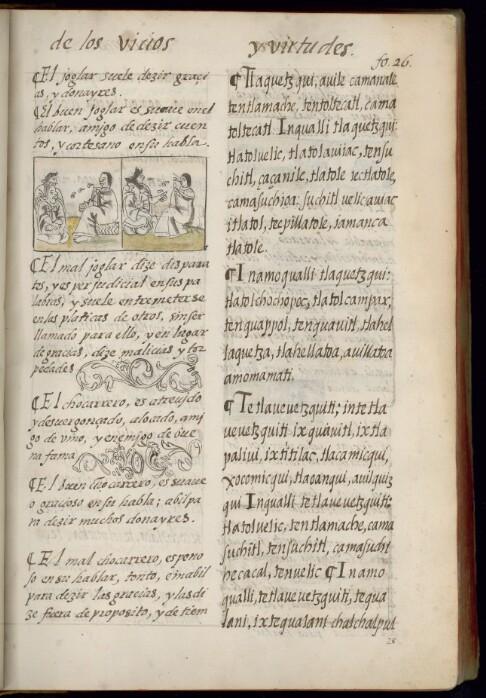 de los vicios
y virtudes.
fo. 26.
¶ El joglar suele dezir graçi
as, y donayres.
¶ El buen joglar es suaue en el
hablar, amigo de dezir cuen
tos, y cortesano en su habla.
¶ El mal joglar dize dispara
tes, y es perjudicial en sus pa
labras, y suele entremeterse
en las platicas de otros, sin ser
llamado para ello, y en lugar
de gracias, dize malicias y tor
pedades
¶ El chocarrero, es atreuido
y desuergonçado, alocado, ami
go de vino, y enemigo de bue
na fama
¶ El buen chocarrero, es suaue
o gracioso en su habla; abil pa
ra dezir muchos donayres.
¶ El mal chocarrero, es peno
so en su hablar, tonto, e inabil
para dezir las gracias, y las di
ze fuera de proposito, y de tiem
¶ Tlaquetzqui, auile camanale
tentlamache, tentoltecatl, cama
toltecatl Inqualli tlaquetzqui:
tlatolvelic, tlatolauiac, tensu
chitl, çaçanile, tlatole ie tlatole,
camasuchioa: suchitl velic auiac
itlatol, tecpillatole, iamanca
tlatole.
¶ In amo qualli tlaquetzqui:
tlatolchochopoc, tlatolcampax,
tenquappol, tenquauitl, tlahel
laquetza, tlahellatoa, auillatoa
amomamati.
¶ Tetlaveuetzquiti; in tetla
veuetzquiti ixquauitl, ixtla
paliui, ixtitilac, tlacamicqui,
xocomicqui, tlaoanqui, auilquiz
qui Inqualli tetlaveuetzquiti:
tlatolvelic, tentlamache, cama
suchitl, tensuchitl, camasuchi
hecacal, tenvelic ¶ In amo
qualli, tetlaveuetzquiti, tequa
lani, ixtequalani chalchalpul
28